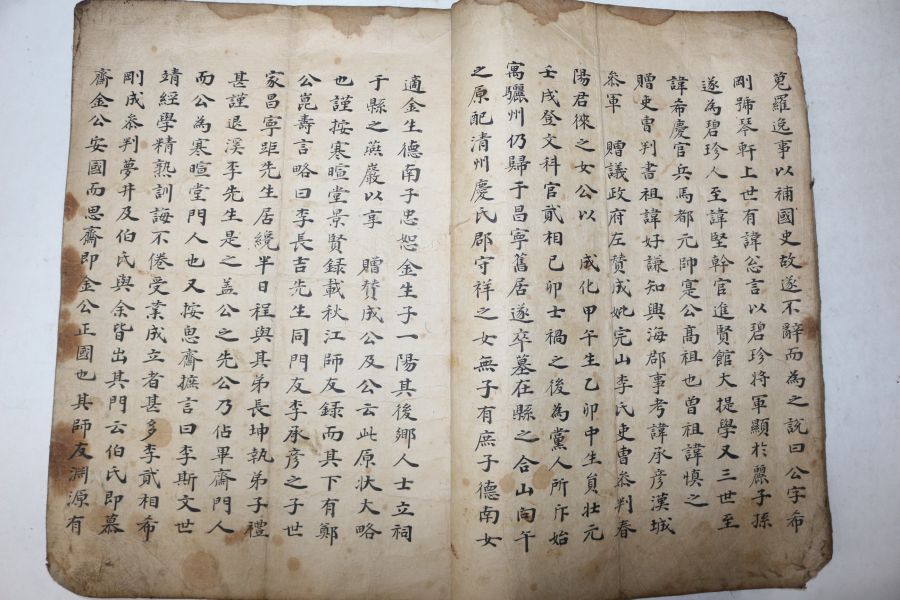 蒐羅逸事以補國史故遂不辭而為之說曰公字希
剛號琴軒上世有諱忩言以碧珍將軍顯於麗子孫
遂為碧珍人至諱堅幹官進賢館大提學又三世至
諱希慶官兵馬都元帥寔公高祖也曾祖諱愼之
贈吏曺判書祖諱好謙知興海郡事考諱承彦漢城
叅軍 贈議政府左贊成妣完山李氏吏曺叅判春
陽君徠之女公以 成化甲午生乙卯中生員壯元
壬戌登文科官貳相已卯士禍之後為黨人所斥始
寓驪州仍歸于昌寧舊居遂卒墓在縣之合山向午
之原配清州慶氏郡守祥之女無子有庶子德南女
適金生德南子忠恕金生子一陽其後鄉人士立祠
于縣之燕巖以享 贈贊成公及公云此原狀大略
也謹按寒暄堂景賢録載秋江師友録而其下有鄭
公崑壽言略曰李長吉先生同門友李承彦之子世
家昌寧距先生居纔半日程與其弟長坤執弟子禮
甚謹退溪李先生是之盖公之先公乃佔畢齋門人
而公為寒暄堂門人也又按思齋摭言曰李斯文世
靖經學精熟訓誨不倦受業成立者甚多李貳相希
剛成叅判夢井及伯氏與余皆出其門云伯氏即慕
齋金公安國而思齋即金公正國也其師友淵源有